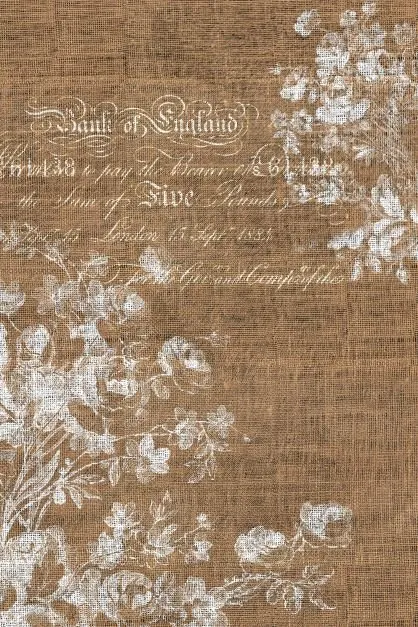 Bank of England
61438 to pay the Bearer 61438
the Sum of Five Pounds
London 15 Sept 1885
For the Gov and Comp of the